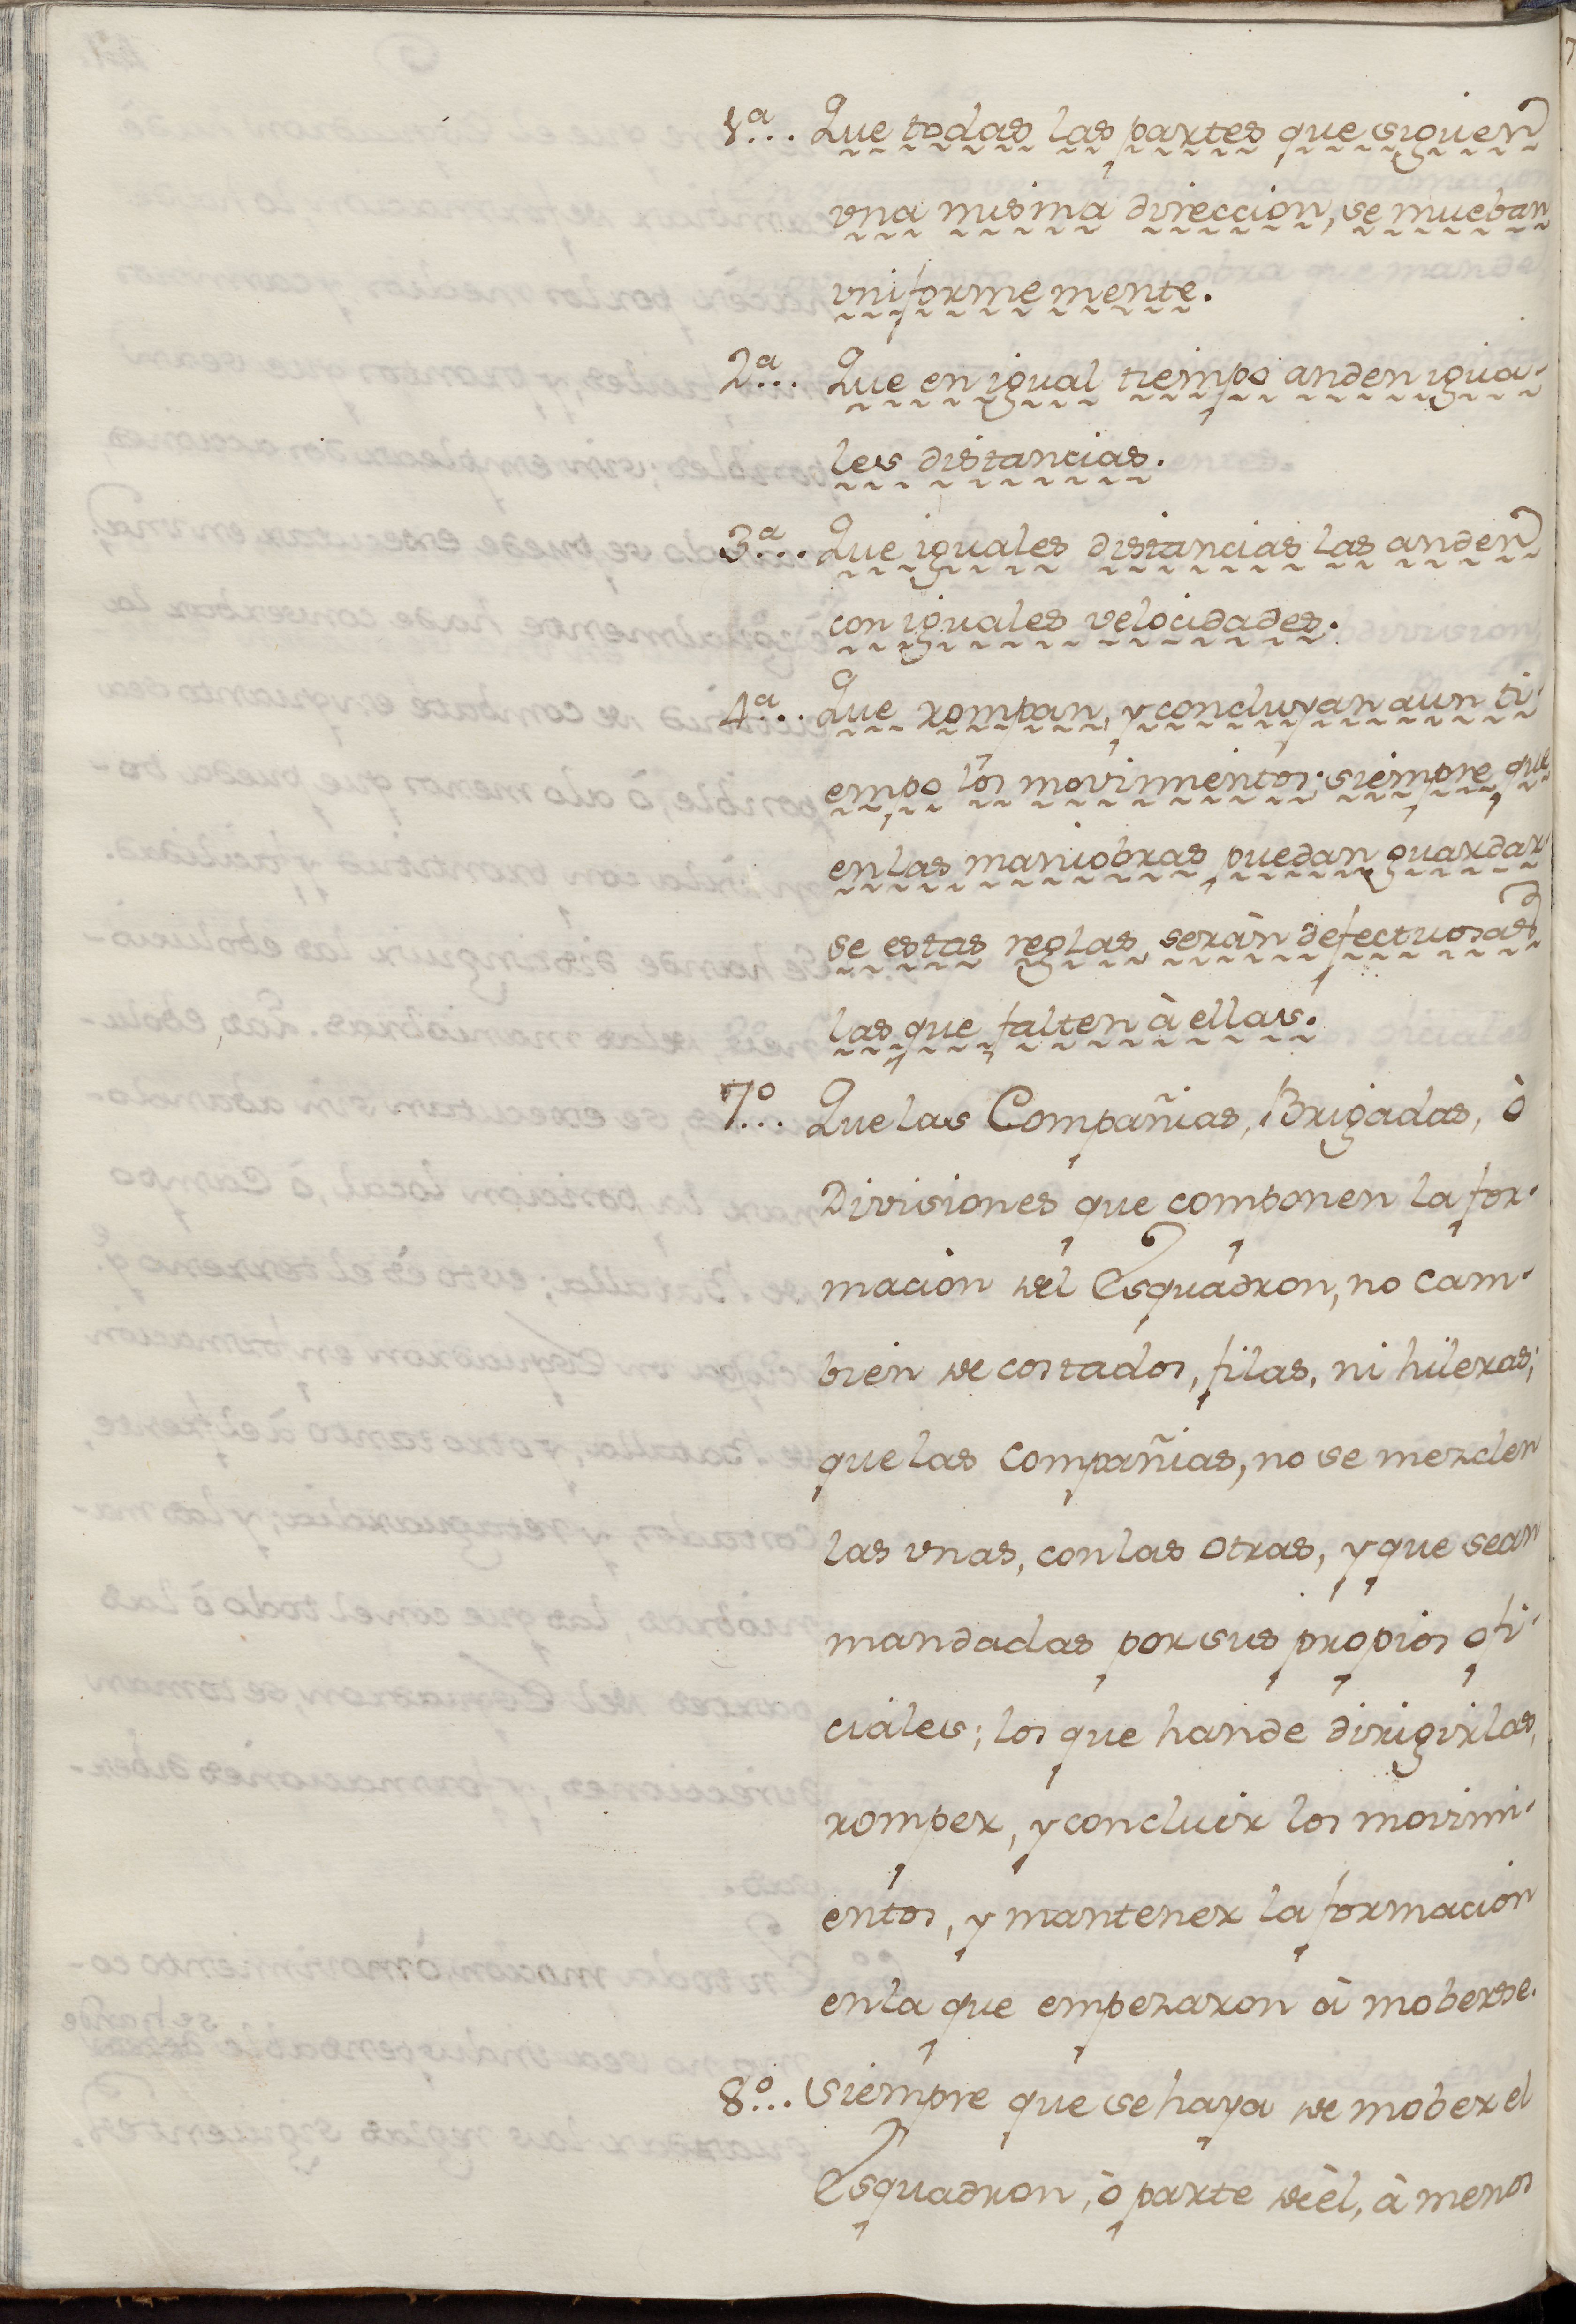 1ª... Que todas las partes que siguen
vna misma direccion, se mueban
vniformemente.
2ª... Que en igual tiempo anden igua-
les distancias.
3ª... Que iguales distancias las anden
con iguales velocidades.
4ª... Que rompan, y concluyan aun ti-
empo los movimientos: siempre que
enlas maniobras puedan guardar-
se estas reglas, seràn defectuosas
las que falten à ellas.
7º... Que las Compañias, Brigadas, ò
Divisiones que componen la for-
macion del Esquadron, no cam-
bien de costados, filas, ni hileras;
que las Compañias, no se mezclen
las vnas, con las otras, y que sean
mandadas por sus propios ofi-
ciales; los que hande dirigirlas,
romper, y concluir los movimi-
entos, y mantener la formacion
enla que empezaron à moberse.
8º... Siempre que se haya de mober el
Esquadron, ò parte de èl, à menos